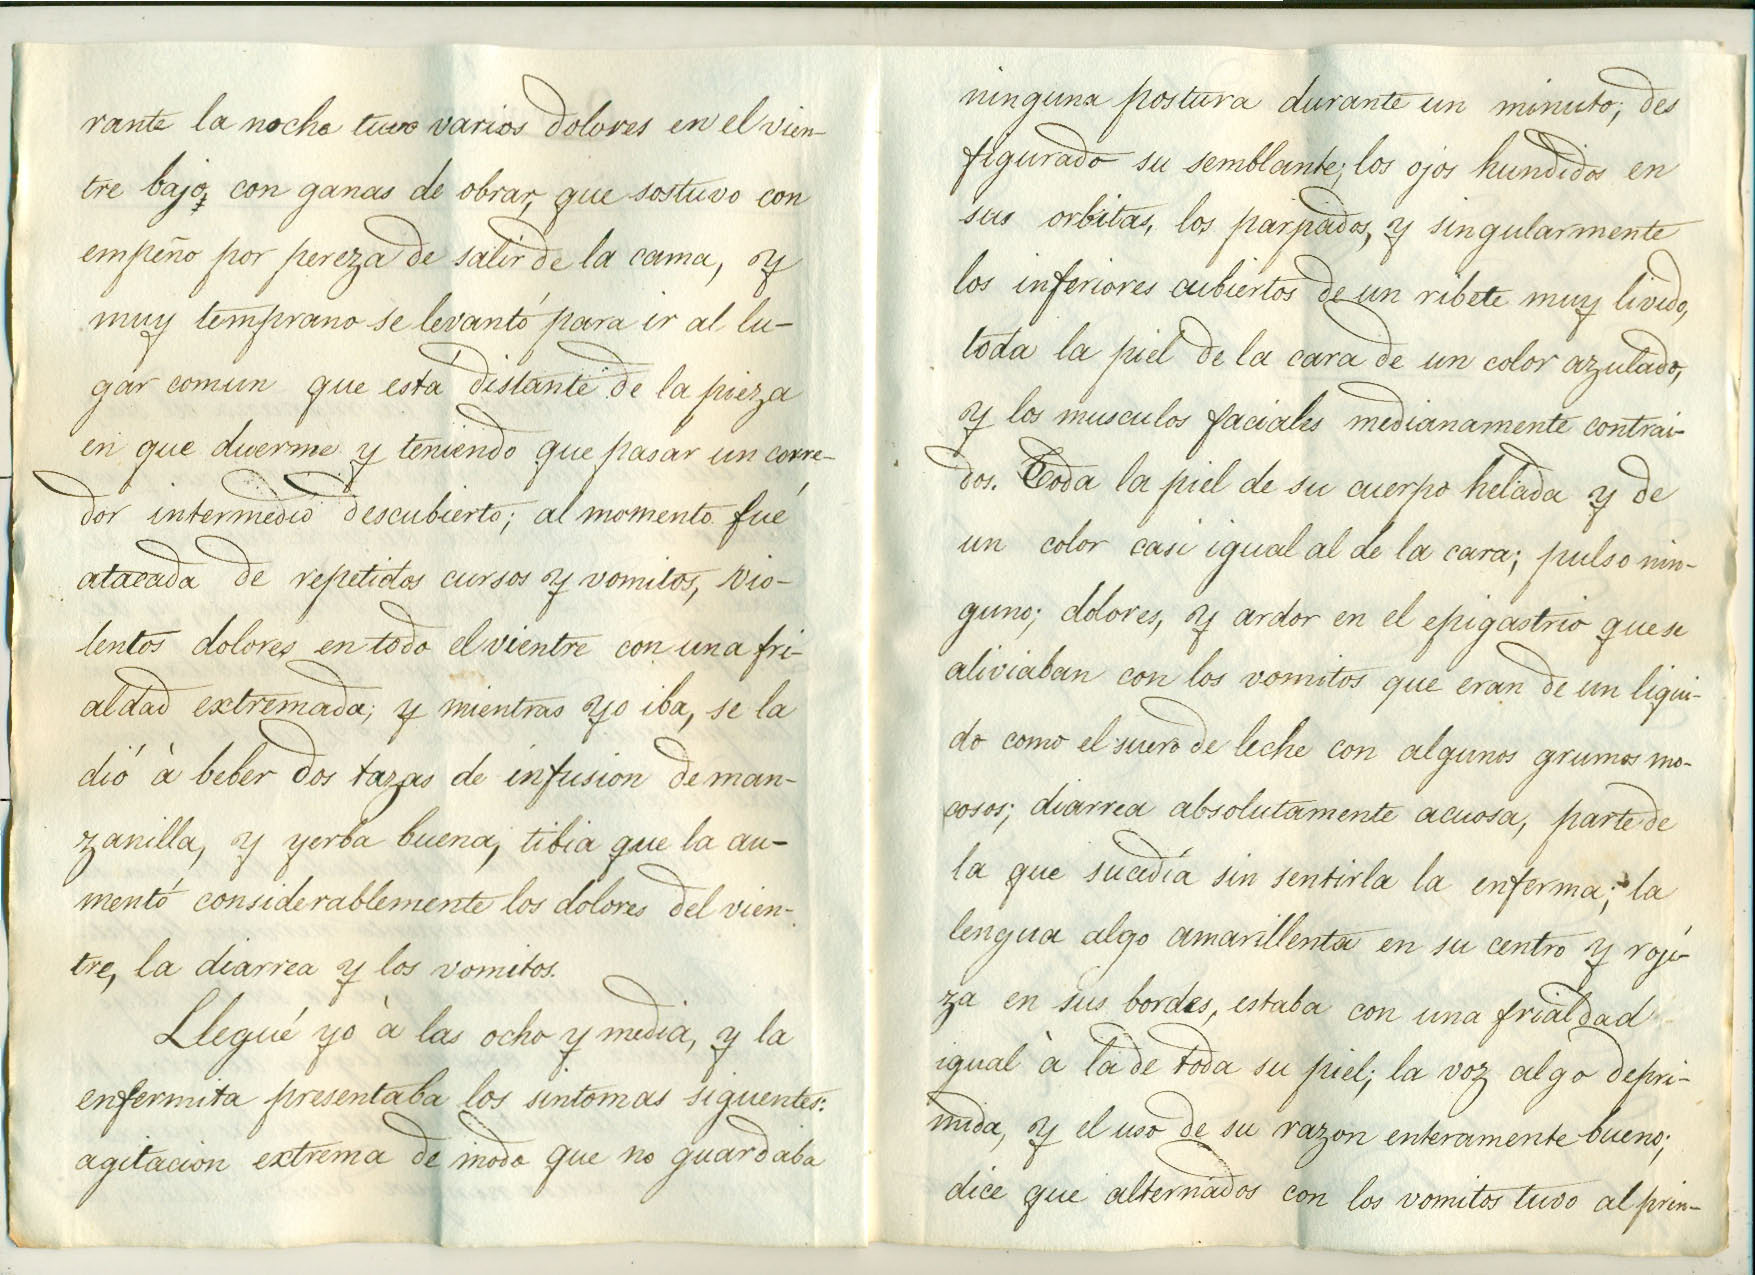 rante la noche tuvo varios dolores en el vien-
tre bajo, con ganas de obrar, que sostuvo con
empeño por pereza de salir de la cama, y
muy temprano se levantó para ir al lu-
gar comun que está distante de la pieza
en que duerme y teniendo que pasar un corre-
dor intermedio descubierto; al momento fué
atacada de repetidos cursos y vomitos, vio-
lentos dolores en todo el vientre con una fri-
aldad extremada; y mientras yo iba, se la
dió à beber dos tazas de infusion de man-
zanilla, y yerba buena, tibia que la au-
mentó considerablemente los dolores del vien-
tre, la diarrea y los vomitos.
Llegué yo à las ocho y media, y la
enfermita presentaba los sintomas siguentes:
agitacion extrema de modo que no guardaba
ninguna postura durante un minuto, des
figurado su semblante, los ojos hundidos en
sus orbitas, los parpados, y singularmente
los inferiores cubiertos de un ribete muy livido,
toda la piel de la cara de un color azulado,
y los musculos faciales medianamente contrai-
dos. Toda la piel de su cuerpo helada y de
un color casi igual al de la cara; pulso nin-
guno; dolores, y ardor en el epigastrio que se
aliviaban con los vomitos que eran de un liqui-
do como el suero de leche con algunos grumos mo-
cosos; diarrea absolutamente acuosa, parte de
la que sucedía sin sentirla la enferma; la
lengua algo amarillenta en su centro y roji-
za en sus bordes, estaba con una frialdad
igual à la de toda su piel; la voz algo depri-
mida, y el uso de su razon enteramente bueno;
dice que alternados con los vomitos tuvo al prin-